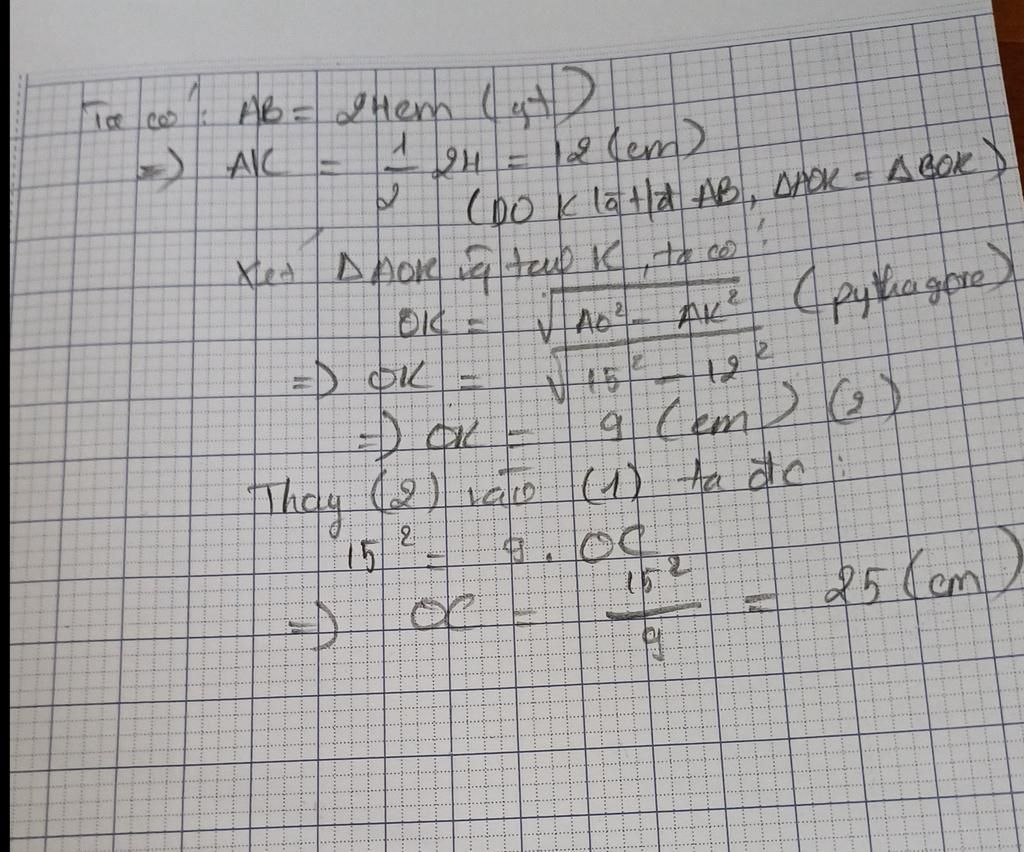 Ta có: AB = 24cm (gt)
=> AK = 1/2 24 = 12 (cm)
(Do K là tđ AB, ΔAOK = ΔBOK)
Xét ΔAOK vg tại K, ta có:
OK = √AO² - AK² (pythagore)
=> OK = √15² - 12²
=> OK = 9 (cm) (2)
Thay (2) vào (1) ta đc:
15² = 9. OC
=> OC = 15²/9 = 25 (cm)